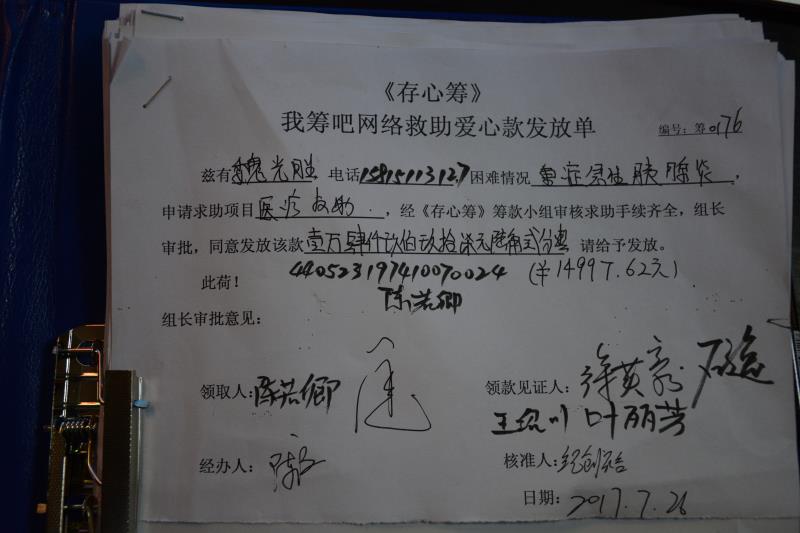 《存心筹》
我筹吧网络救助爱心款发放单
编号：筹0176
兹有魏光胜 电话15915113127困难情况 重症急性胰腺炎，
申请求助项目医疗救助，经《存心筹》筹款小组审核求助手续齐全，组长
审批，同意发放该款壹万肆仟玖佰玖拾柒元陆角贰分 请给予发放。
此荷！ 440523197410070024 (￥14997.62元)
陈若卿
组长审批意见：
领取人：陈若卿 领款见证人：徐英
叶丽芳
经办人： 核准人：
日期：2017.7.26